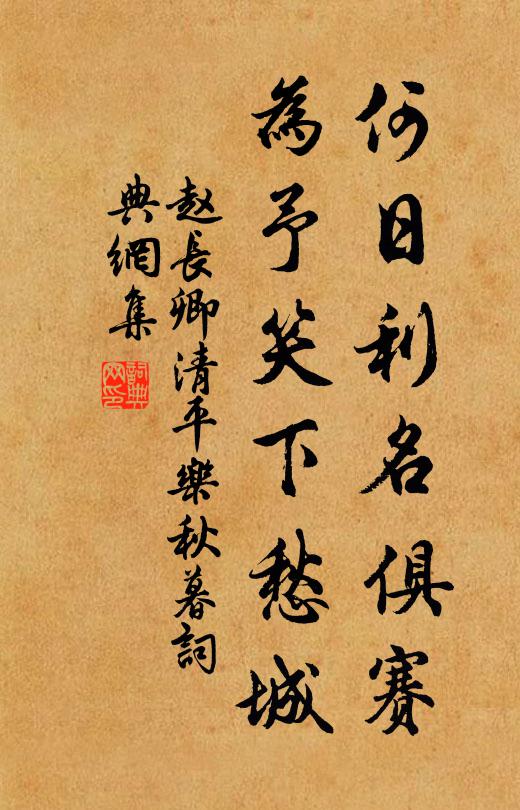 何日利名俱賽
為予笑下愁城
赵長卿清平樂秋暮詞
典網集
詞典
网印